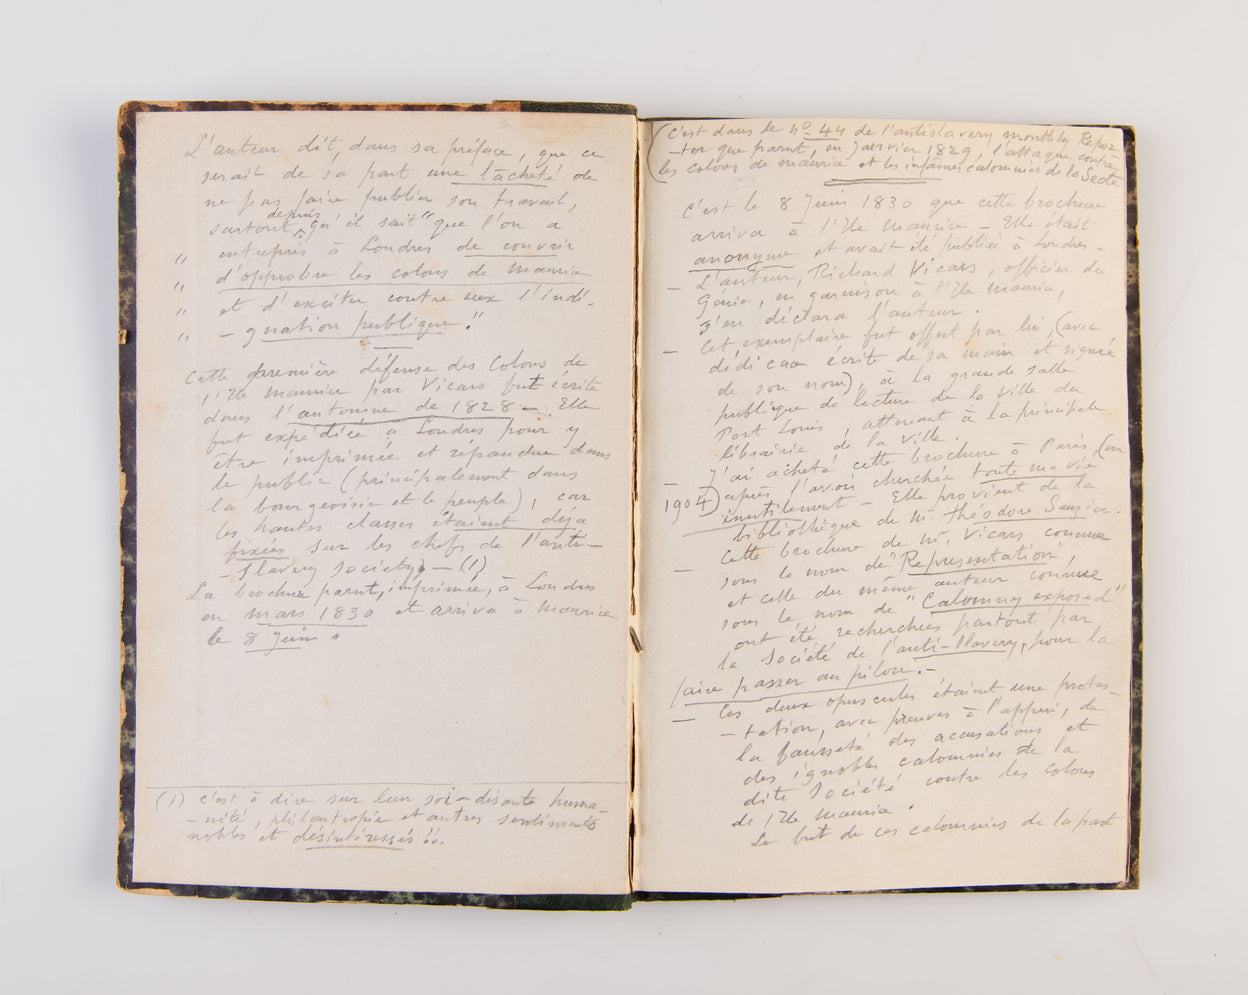 L'auteur dit, dans sa préface, que ce
serait de sa part une lâcheté de
ne pas faire publier son travail,
surtout depuis qu'il sait "que l'on a
" entrepris à Londres de couvrir
" d'opprobre les colons de Maurice
" et d'exciter contre eux l'indi-
" - gnation publique."
Cette première défense des Colons de
l'Ile Maurice par Vicars fut écrite
dans l'automne de 1828 - . Elle
fut expédiée à Londres pour y
être imprimée et répandue dans
le public (principalement dans
la bourgeoisie et le peuple), car
les hautes classes étaient déjà
fixées sur les chefs de l'anti-
- Slavery Society) - (1)
La brochure parut, imprimée, à Londres
en mars 1830 et arriva à Maurice
le 8 Juin.
(1) c'est à dire sur leur soi-disante huma-
- nité, philantropie et autres sentiments
nobles et désintéressés !!.
(c'est dans le No 44 de l'antislavery monthly Repor
- ter que parut, en Janvier 1829, l'attaque contre
les colons de Maurice et les infâmes calomnies de la Secte
C'est le 8 Juin 1830 que cette brochure
arriva à l'Ile Maurice - Elle était
anonyme et avait été publiée à Londres -
- L'auteur, Richard Vicars, officier du
Génie, en garnison à l'Ile Maurice,
s'en déclara l'auteur.
- Cet exemplaire fut offert par lui, (avec
dédicace écrite de sa main et signée
de son nom), à la grande salle
publique de lecture de la ville du
Port Louis, attenant à la principale
librairie de la ville.
- J'ai acheté cette brochure à Paris, (en
1904) après l'avoir cherchée toute ma vie
inutilement - Elle provient de la
bibliothèque de Mr. Théodore Sauzier.
- Cette brochure de Mr. Vicars connue
sous le nom de "Representation",
et celle du même auteur connue
sous le nom de "Calomny exposed"
ont été recherchées partout par
la Société de l'anti-Slavery, pour la
faire passer au pilon. -
- Ces deux opuscules étaient une protes-
- tation, avec preuves à l'appui, de
la fausseté des accusations et
des ignobles calomnies de la
dite Société contre les colons
de l'Ile Maurice.
Le but de ces calomnies de la part